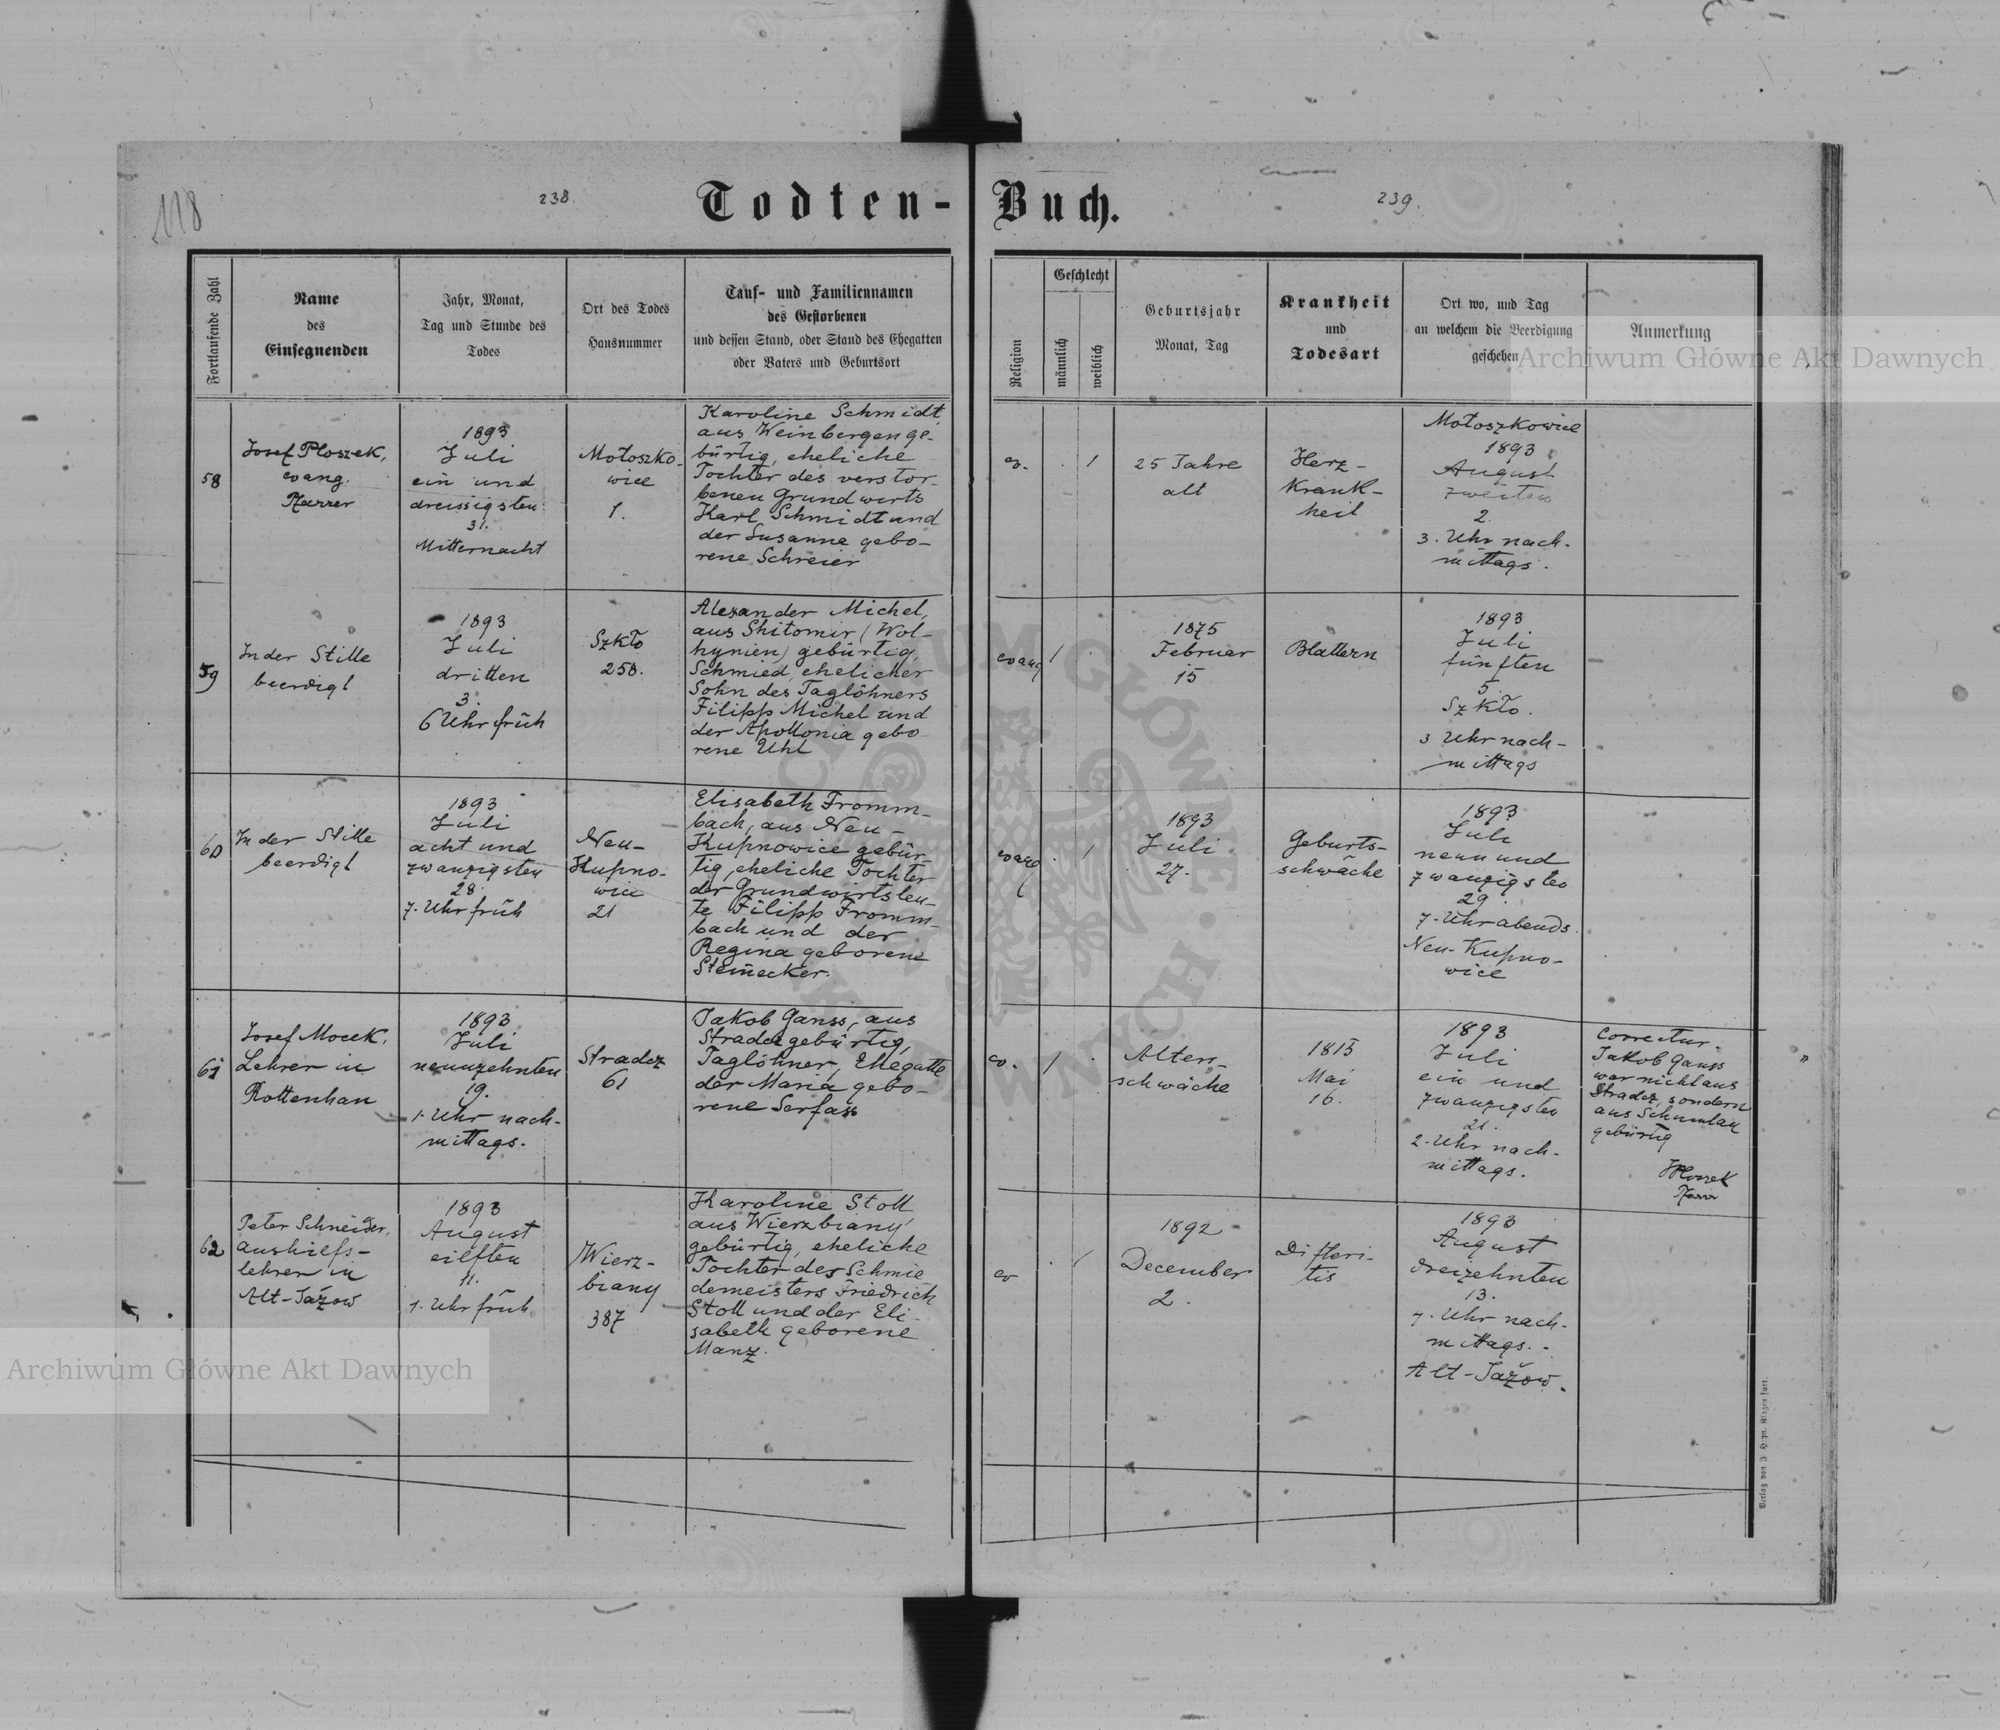 118
238.
Todten-
Buch.
239.
Fortlaufende Zahl
Name
des
Einsegnenden
Jahr, Monat,
Tag und Stunde des
Todes
Ort des Todes
Hausnummer
Tauf- und Familiennamen
des Gestorbenen
und dessen Stand, oder Stand des Ehegatten
oder Vaters und Geburtsort
Religion
Geschlecht
männlich
weiblich
Geburtsjahr
Monat, Tag
Krankheit
und
Todesart
Ort wo, und Tag
an welchem die Beerdigung
geschehen
Anmerkung
Archiwum Główne Akt Dawnych
58
Josef Ploszek,
evang.
Pfarrer
1893
Juli
ein und
dreissigsten
31.
Mitternacht
Mołoszko-
wice
1.
Karoline Schmidt
aus Weinbergen ge-
bürtig, eheliche
Tochter des verstor-
benen Grundwirts
Karl Schmidt und
der Susanne gebo-
rene Schreier
ev.
1
25 Jahre
alt
Herz-
krank-
heit
Mołoszkowice
1893
August
zweiten
2.
3. Uhr nach-
mittags.
59
In der Stille
beerdigt
1893
Juli
dritten
3.
6 Uhr früh
Szkło
258.
Alexander Michel,
aus Shitomir (Wol-
hynien) gebürtig,
Schmied, ehelicher
Sohn des Taglöhners
Filipp Michel und
der Apollonia gebo
rene Uhl
evang
1
1875
Februar
15
Blattern
1893
Juli
fünften
5.
Szkło.
3 Uhr nach-
mittags
60
In der Stille
beerdigt
1893
Juli
acht und
zwanzigsten
28.
7. Uhr früh
Neu-
Kupno-
wice
21
Elisabeth Fromm-
bach, aus Neu-
Kupnowice gebür-
tig, eheliche Tochter
der Grundwirtsleu-
te Filipp Fromm-
bach und der
Regina geborene
Steinecker.
evang
1
1893
Juli
27.
Geburts-
schwäche
1893
Juli
neun und
zwanzigsten
29.
7. Uhr abends.
Neu-Kupno-
wice
61
Josef Mocek,
Lehrer in
Rottenhan
1893
Juli
neunzehnten
19.
1. Uhr nach-
mittags.
Stradcz
61
Jakob Ganss, aus
Stradcz gebürtig,
Taglöhner, Ehegatte
der Maria gebo-
rene Serfass
ev.
1
Alters-
schwäche
1815
Mai
16.
1893
Juli
ein und
zwanzigsten
21.
2. Uhr nach-
mittags.
Correctur.
Jakob Ganss
war nicht aus
Stradcz, sondern
aus Schumlau
gebürtig
JPloszek
Pfarrer
62
Peter Schneider,
aushilfs-
lehrer in
Alt-Jażow
1893
August
eilften
11.
1. Uhr früh
Wierz-
biany
387
Karoline Stoll
aus Wierzbiany
gebürtig, eheliche
Tochter des Schmie
demeisters Friedrich
Stoll und der Eli-
sabeth geborene
Manz.
ev
1
1892
December
2.
Difteri-
tis
1893
August
dreizehnten
13.
4. Uhr nach-
mittags.
Alt-Jażow.
Archiwum Główne Akt Dawnych